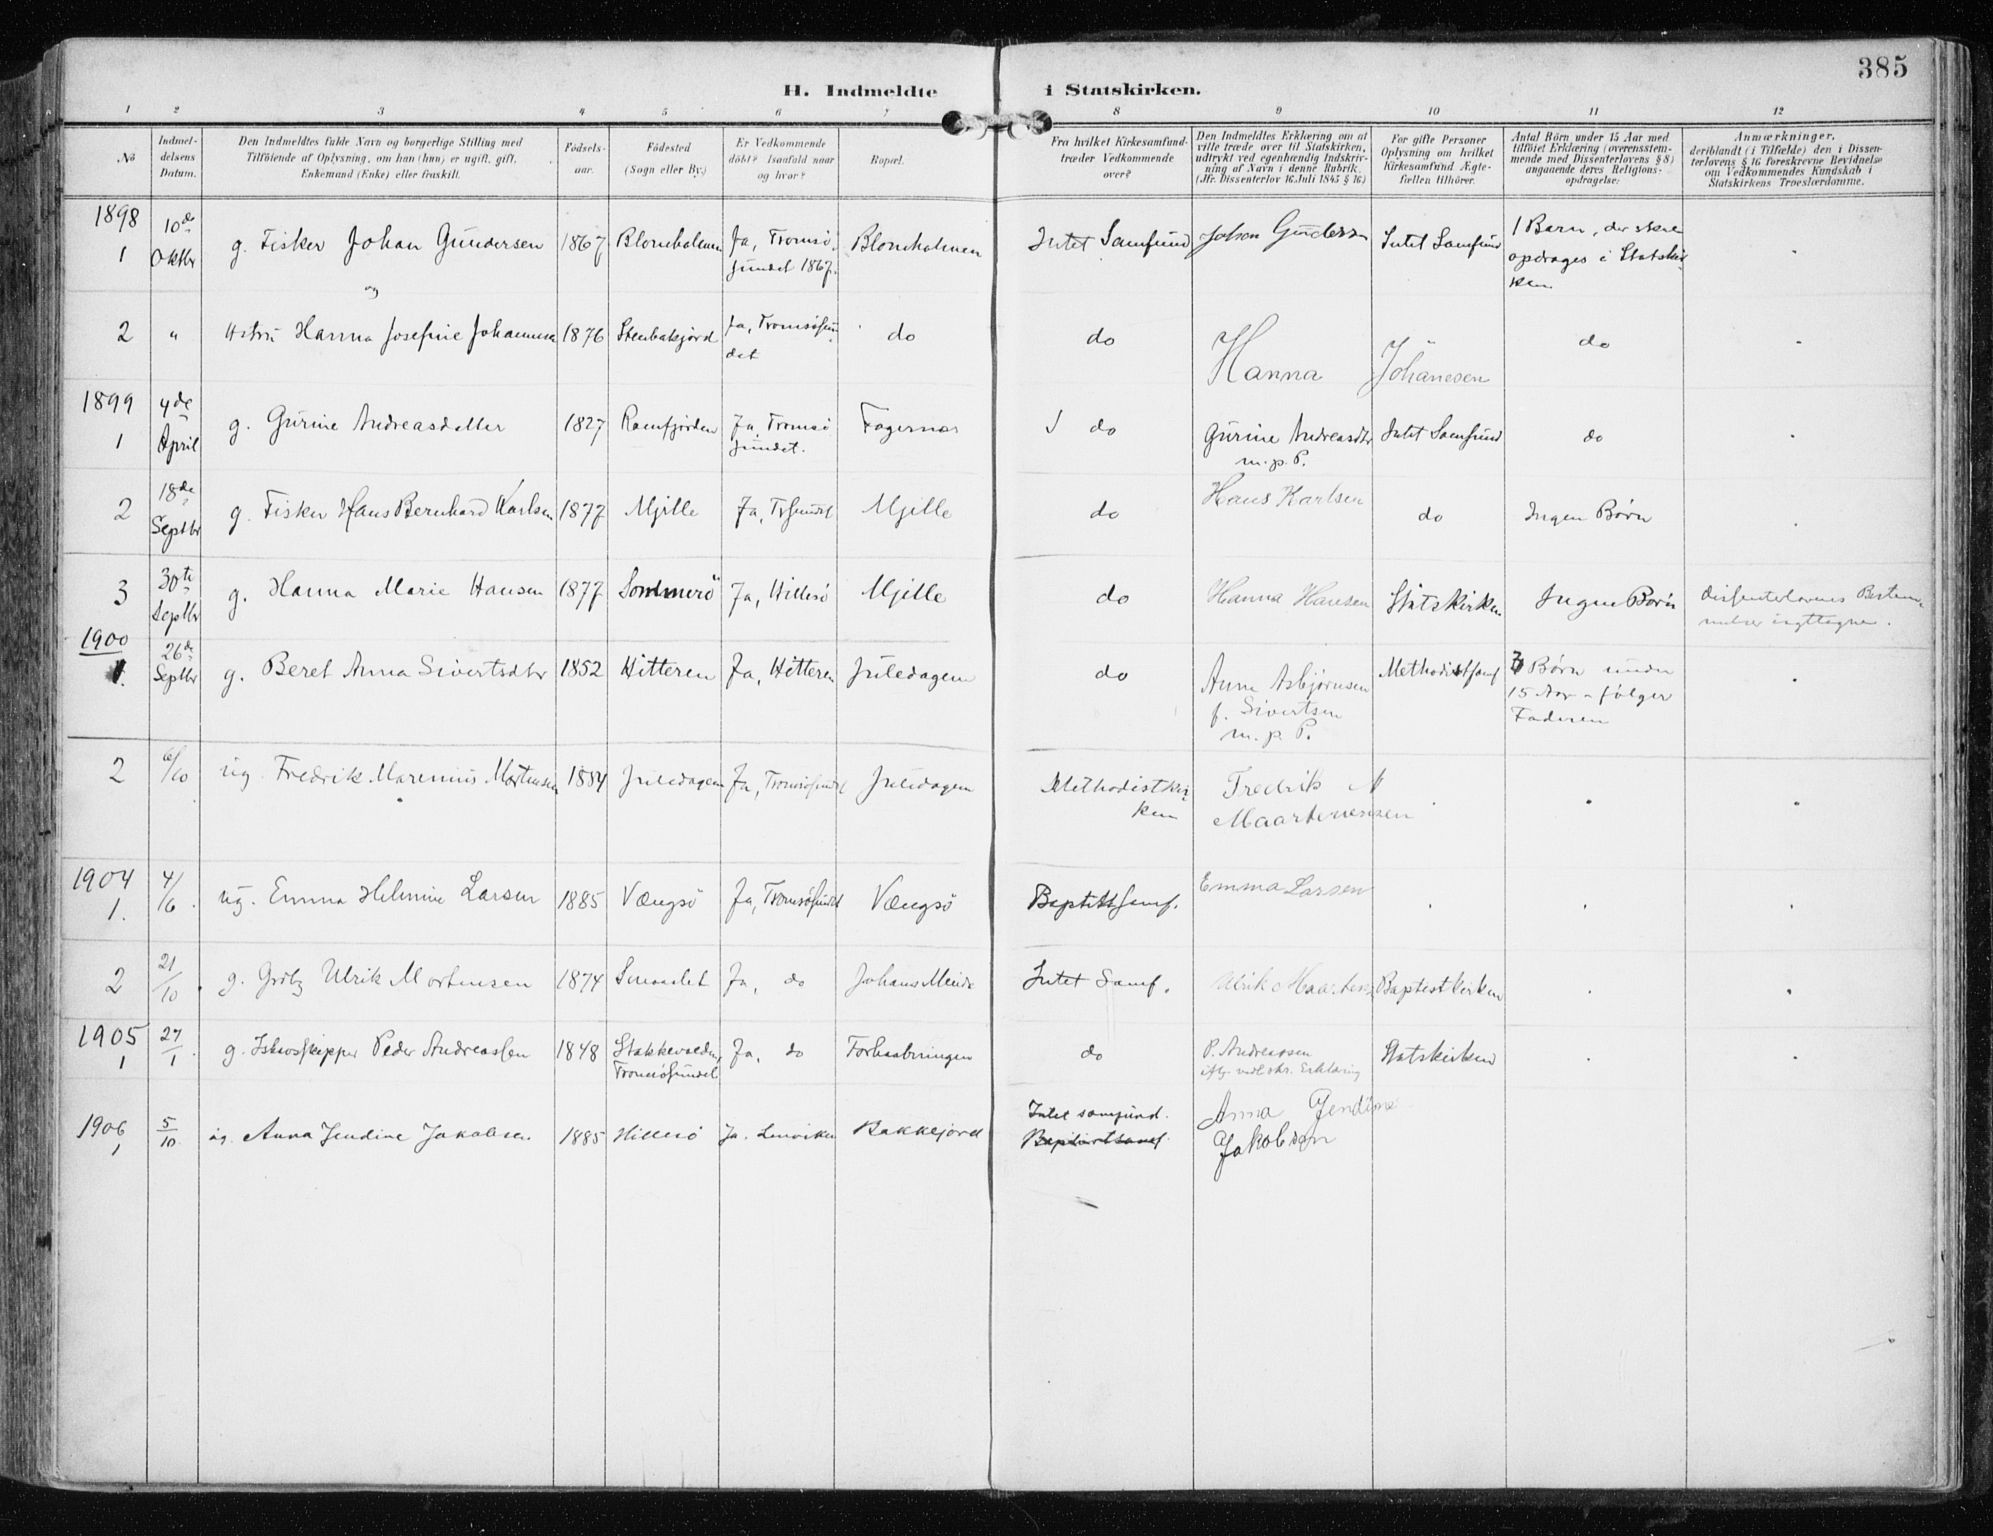 385
H. Indmeldte i Statskirken.
1 2 3 4 5 6 7 8 9 10 11 12
No
Indmel-
delsens
Datum.
Den Indmeldtes fulde Navn og borgerlige Stilling med
Tilföiende af Oplysning, om han (hun) er ugift, gift,
Enkemand (Enke) eller fraskilt.
Födsels-
aar.
Födested
(Sogn eller By.)
Er Vedkommende
döbt? Isaafald naar
og hvor?
Bopæl.
Fra hvilket Kirkesamfund-
træder Vedkommende
over?
Den Indmeldtes Erklæring om at
ville træde over til Statskirken,
udtrykt ved egenhændig Indskriv-
ning af Navn i denne Rubrik.
(Jfr. Dissenterlov 16 Juli 1845 § 16)
For gifte Personer
Oplysning om hvilket
Kirkesamfund Ægte-
fællen tilhörer.
Antal Börn under 15 Aar med
tilföiet Erklæring (overensstem-
mende med Dissenterlovens § 8)
angaaende deres Religions-
opdragelse:
Anmærkninger,
deriblandt (i Tilfælde) den i Dissen-
terlovens § 16 foreskrevne Bevidnelse
om Vedkommendes Kundskab i
Statskirkens Troeslærdomme.
1898
1 10de Oktbr g. Fisker Johan Gundersen 1867 Blomholmen Ja, Tromsö- Blomholmen Intet Samfund Johan Gundersen Intet Samfund 1 Barn, der skal
sundet 1867. opdrages i Statskir-
ken
og
2 " Hstru Hanna Josefine Johannesen 1876 Stenbakjord Ja, Tromsösun- do do Hanna Johanesen do
det
1899
1 4de April g. Gurine Andreasdatter 1827 Ramfjorden Ja, Tromsö Fagernes do Gurine Andreasdtr Intet Samfund do
sundet. m.p.P.
2 18de Septbr g. Fisker Hans Bernhard Karlsen 1877 Mjille Ja, Trsundet Mjille do Hans Karlsen do Ingen Börn
3 30te Septbr g. Hanna Marie Hansen 1877 Sommerö Ja, Hillesö Mjille do Hanna Hansen Statskirken Ingen Börn Dissenterlovens Bestem-
melser iagttagne.
1900
1. 26de Septbr g. Beret Anna Sivertsdtr 1852 Hitteren Ja, Hitteren Juledagen do Anne Asbjörnsen Methodistsamf Börn under
f. Sivertsen 15 Aar - fölger
m. p. P. Faderen
2 6/10 ug. Fredrik Marenius Mortensen 1884 Juledagen Ja, Tromsösundet Juledagen Methodistkir- Fredrik M
ken Maartenesen
1904
1. 4/6 ug. Emma Helmine Larsen 1885 Vængsö Ja, Tromsösundet Vængsö Baptistsamf. Emma Larsen
2 21/10 g. Grbg Ulrik Mortensen 1874 Ja, do Intet Samf. Ulrik Baptistkirken
1905
1 27/1 g. Ishavsskipper Peder Andreassen 1848 Stakkevolden, Ja, do Forhaabningen do P. Andreassen Statskirken
Tromsösundet iflg. vedl. skr. Erklæring
1906
1 5/10 ug. Anna Jendine Jakobsen 1885 Hillesö Ja. Lenviken Bakkejord Intet samfund. Anna Jendine
Baptistsamf. Jakobsen